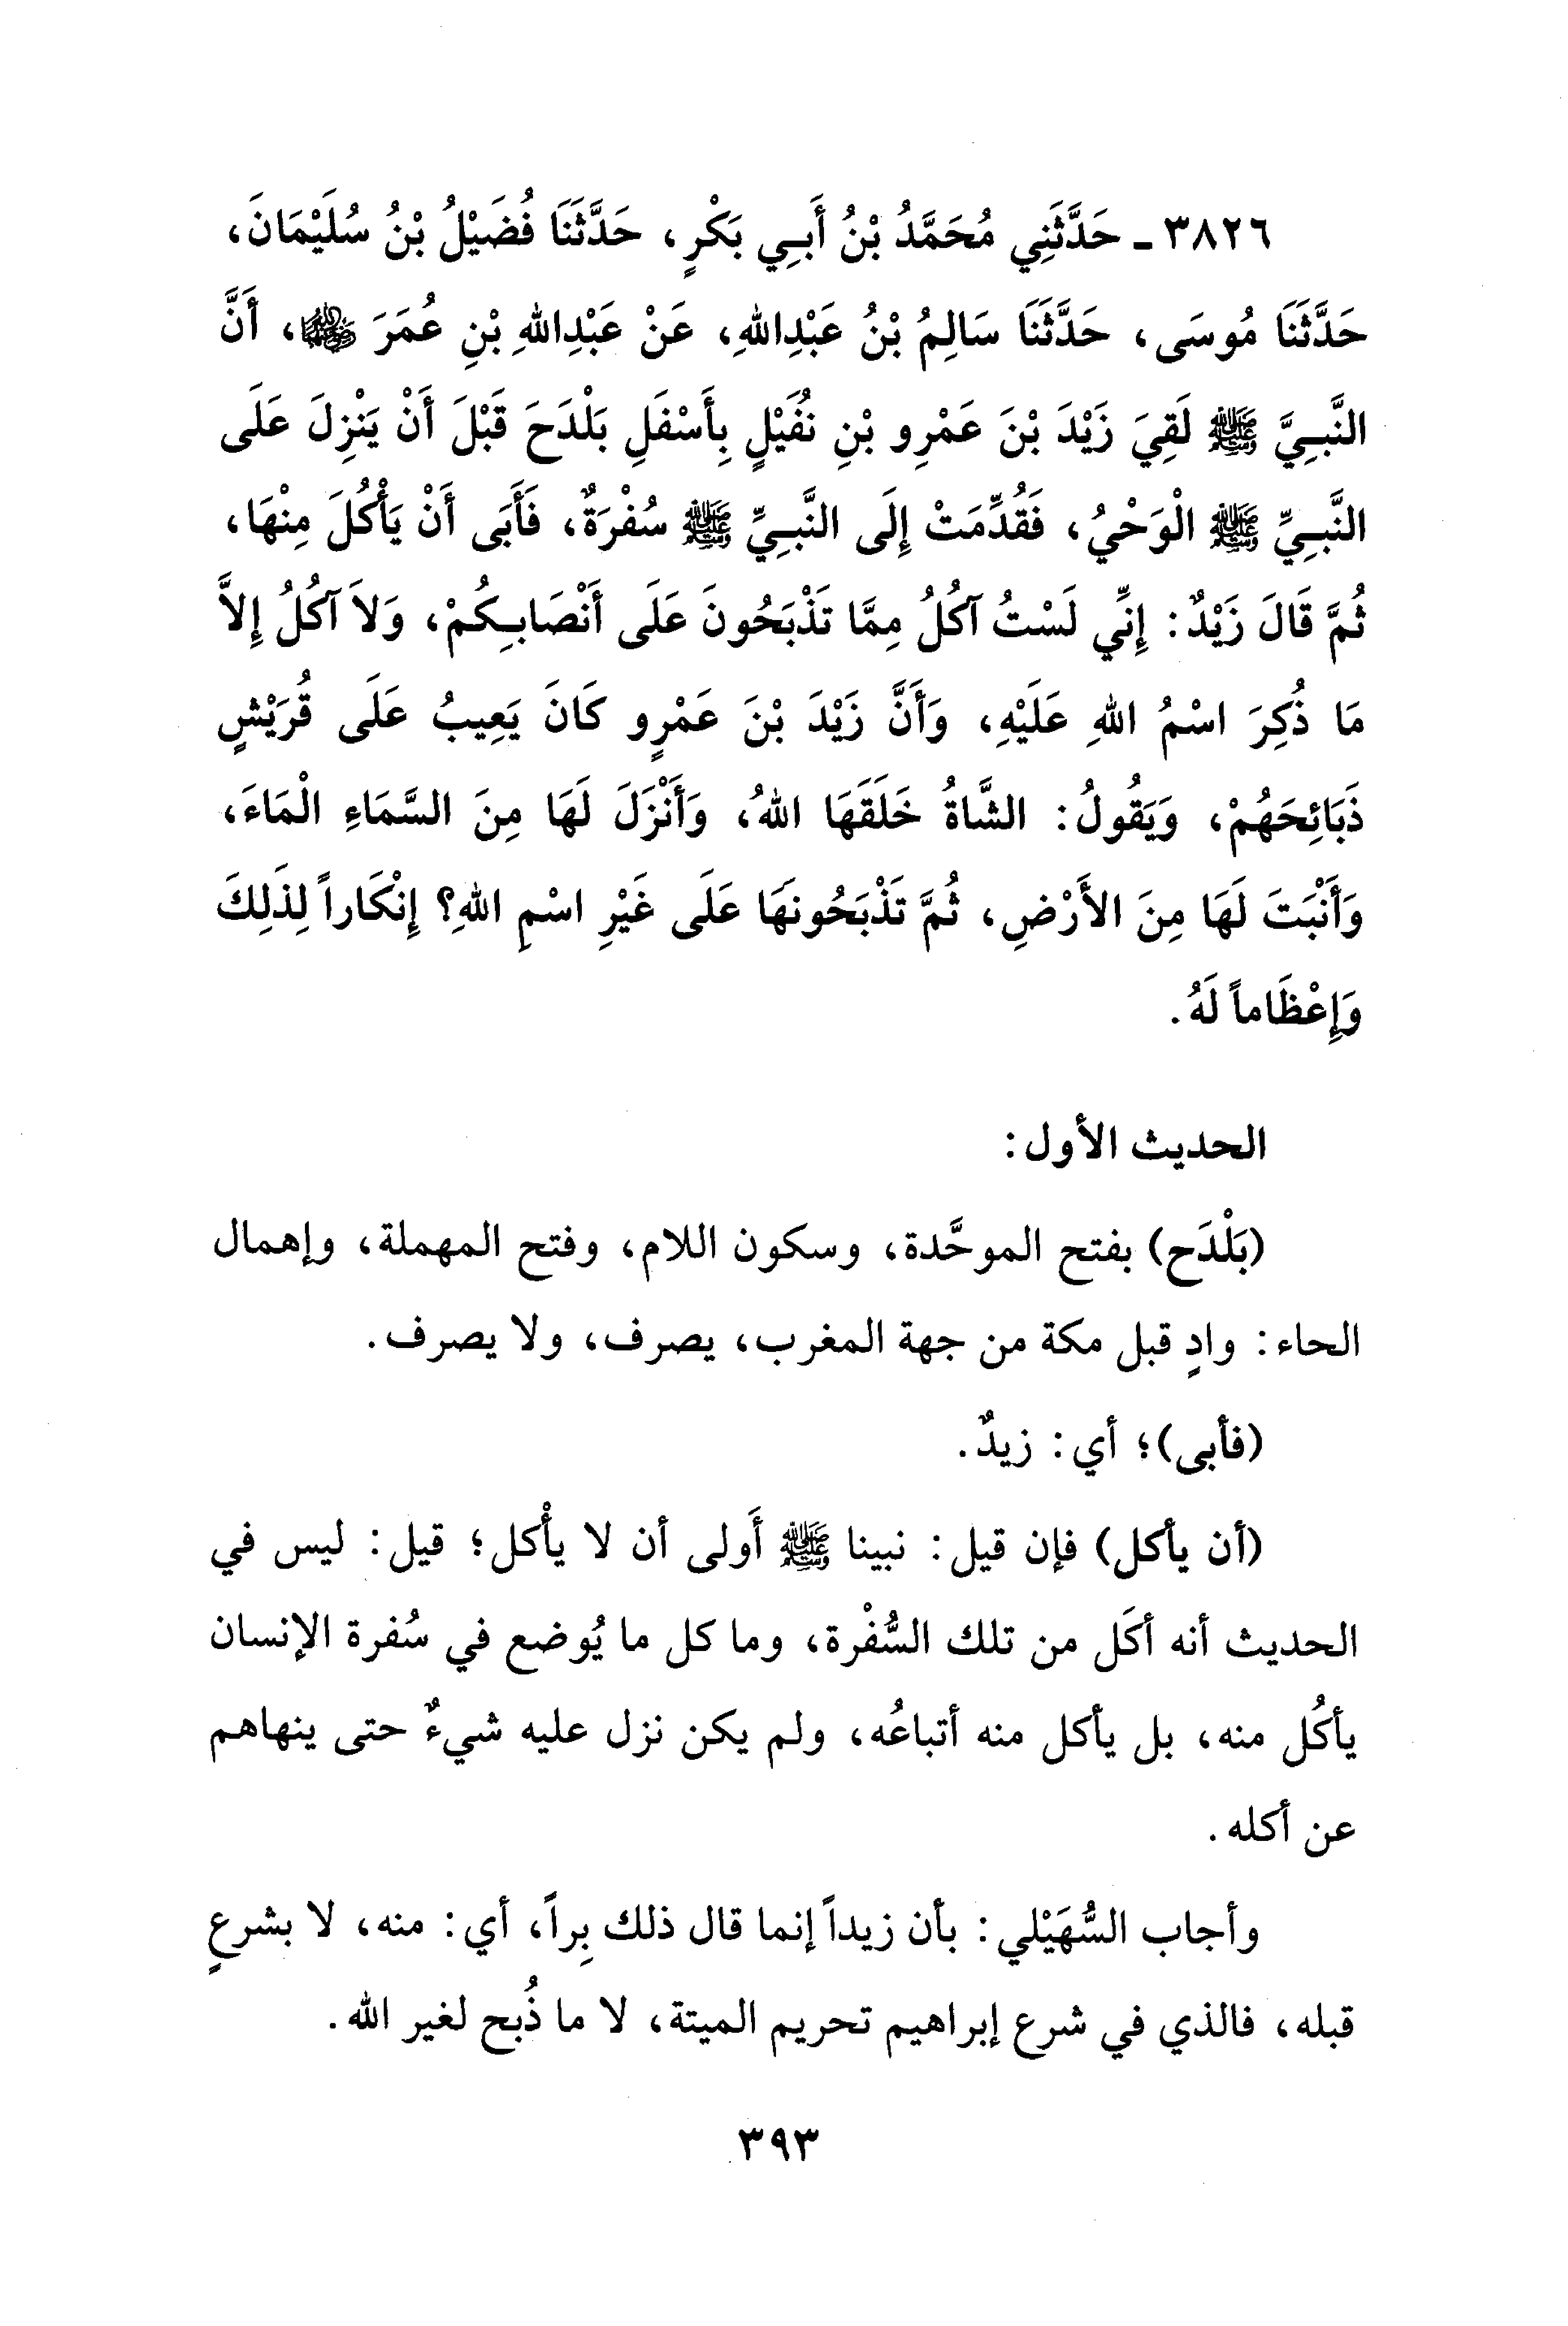 ٣٨٢٦ - حَدَّثَنِي مُحَمَّدُ بْنُ أَبِي بَكْرٍ، حَدَّثَنَا فُضَيْلُ بْنُ سُلَيْمَانَ،
حَدَّثَنَا مُوسَى، حَدَّثَنَا سَالِمُ بْنُ عَبْدِاللهِ، عَنْ عَبْدِاللهِ بْنِ عُمَرَ ﵁، أَنَّ
النَّبِيَّ ﷺ لَقِيَ زَيْدَ بْنَ عَمْرِو بْنِ نُفَيْلٍ بِأَسْفَلِ بَلْدَحَ قَبْلَ أَنْ يَنْزِلَ عَلَى
النَّبِيِّ ﷺ الْوَحْيُ، فَقُدِّمَتْ إِلَى النَّبِيِّ ﷺ سُفْرَةٌ، فَأَبَى أَنْ يَأْكُلَ مِنْهَا،
ثُمَّ قَالَ زَيْدٌ: إِنِّي لَسْتُ آكُلُ مِمَّا تَذْبَحُونَ عَلَى أَنْصَابِكُمْ، وَلاَ آكُلُ إِلاَّ
مَا ذُكِرَ اسْمُ اللهِ عَلَيْهِ، وَأَنَّ زَيْدَ بْنَ عَمْرٍو كَانَ يَعِيبُ عَلَى قُرَيْشٍ
ذَبَائِحَهُمْ، وَيَقُولُ: الشَّاةُ خَلَقَهَا اللهُ، وَأَنْزَلَ لَهَا مِنَ السَّمَاءِ الْمَاءَ،
وَأَنْبَتَ لَهَا مِنَ الأَرْضِ، ثُمَّ تَذْبَحُونَهَا عَلَى غَيْرِ اسْمِ اللهِ؟ إِنْكَاراً لِذَلِكَ
وَإِعْظَاماً لَهُ.
الحديث الأول:
(بَلْدَح) بفتح الموحَّدة، وسكون اللام، وفتح المهملة، وإهمال
الحاء: وادٍ قبل مكة من جهة المغرب، يصرف، ولا يصرف.
(فأبى)؛ أي: زيدٌ.
(أن يأكل) فإن قيل: نبينا ﷺ أَولى أن لا يأْكل؛ قيل: ليس في
الحديث أنه أكَل من تلك السُّفْرة، وما كل ما يُوضع في سُفرة الإنسان
يأكُل منه، بل يأكل منه أتباعُه، ولم يكن نزل عليه شيءٌ حتى ينهاهم
عن أكله.
وأجاب السُّهَيْلي: بأن زيداً إنما قال ذلك بِراً، أي: منه، لا بشرعٍ
قبله، فالذي في شرع إبراهيم تحريم الميتة، لا ما ذُبح لغير الله.
٣٩٣